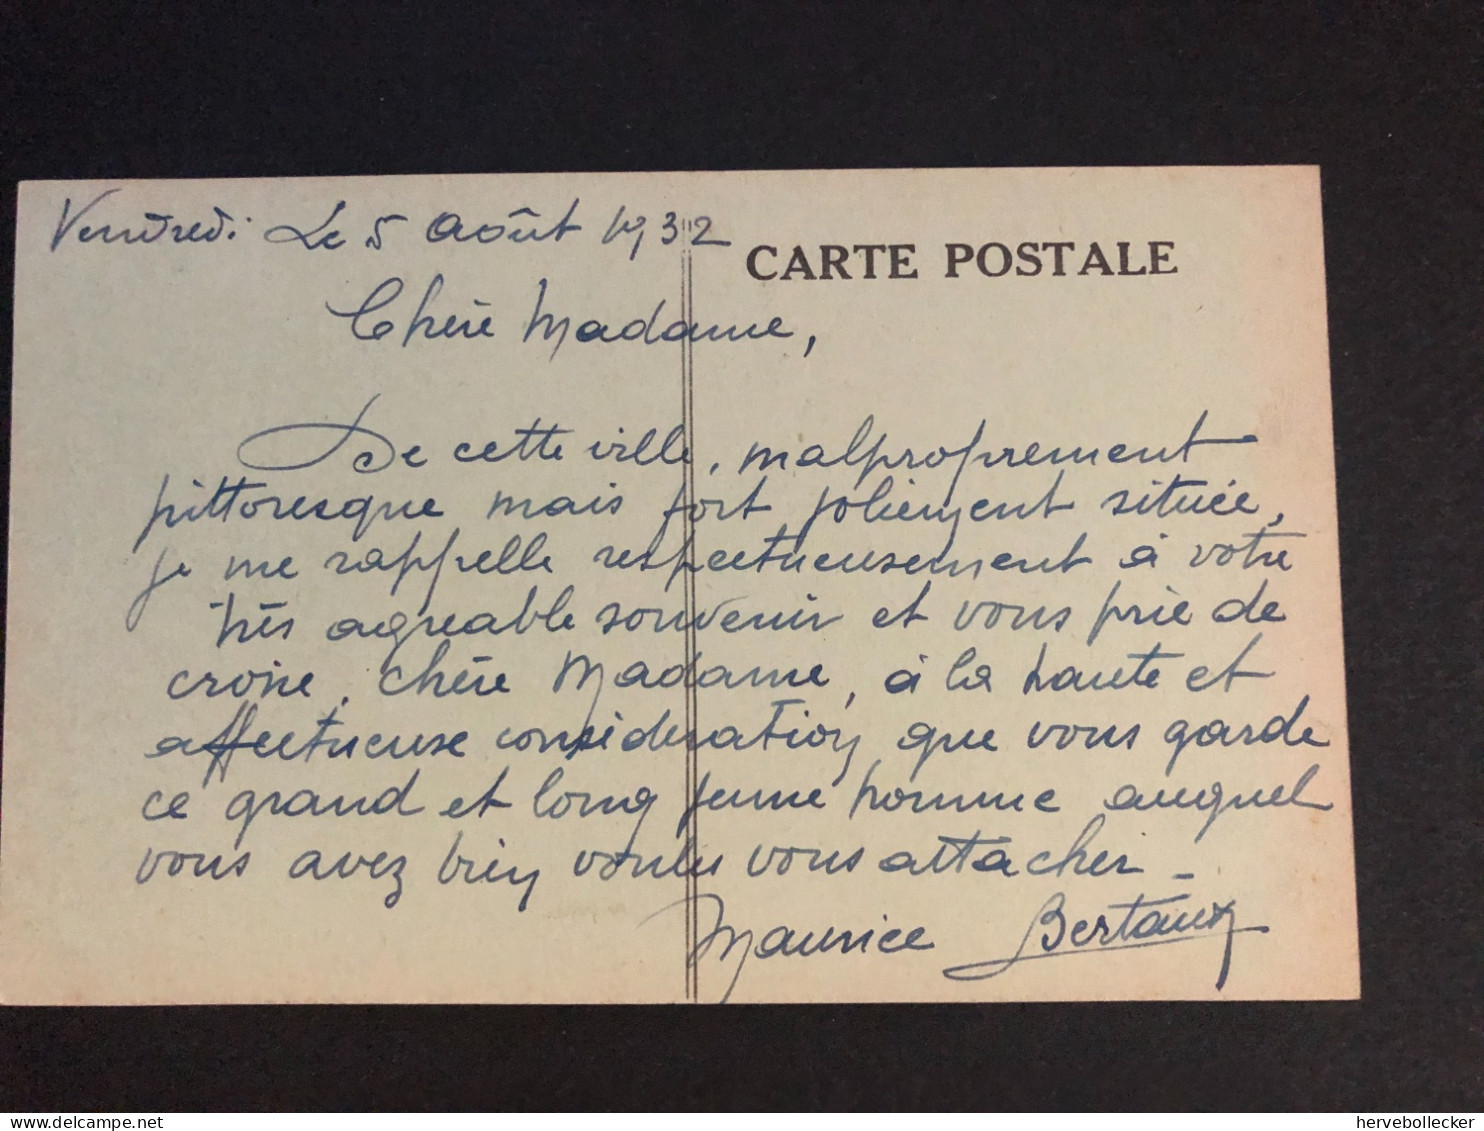 Vendredi Le 5 Août 1932
CARTE POSTALE
Chère Madame,
De cette ville, malproprement
pittoresque mais fort joliement située,
je me rappelle respectueusement à votre
très agréable souvenir et vous prie de
croire, chère Madame, à la haute et
affectueuse considération que vous garde
ce grand et long jeune homme auquel
vous avez bien voulu vous attacher -
Maurice Bertaux
hervebollecker